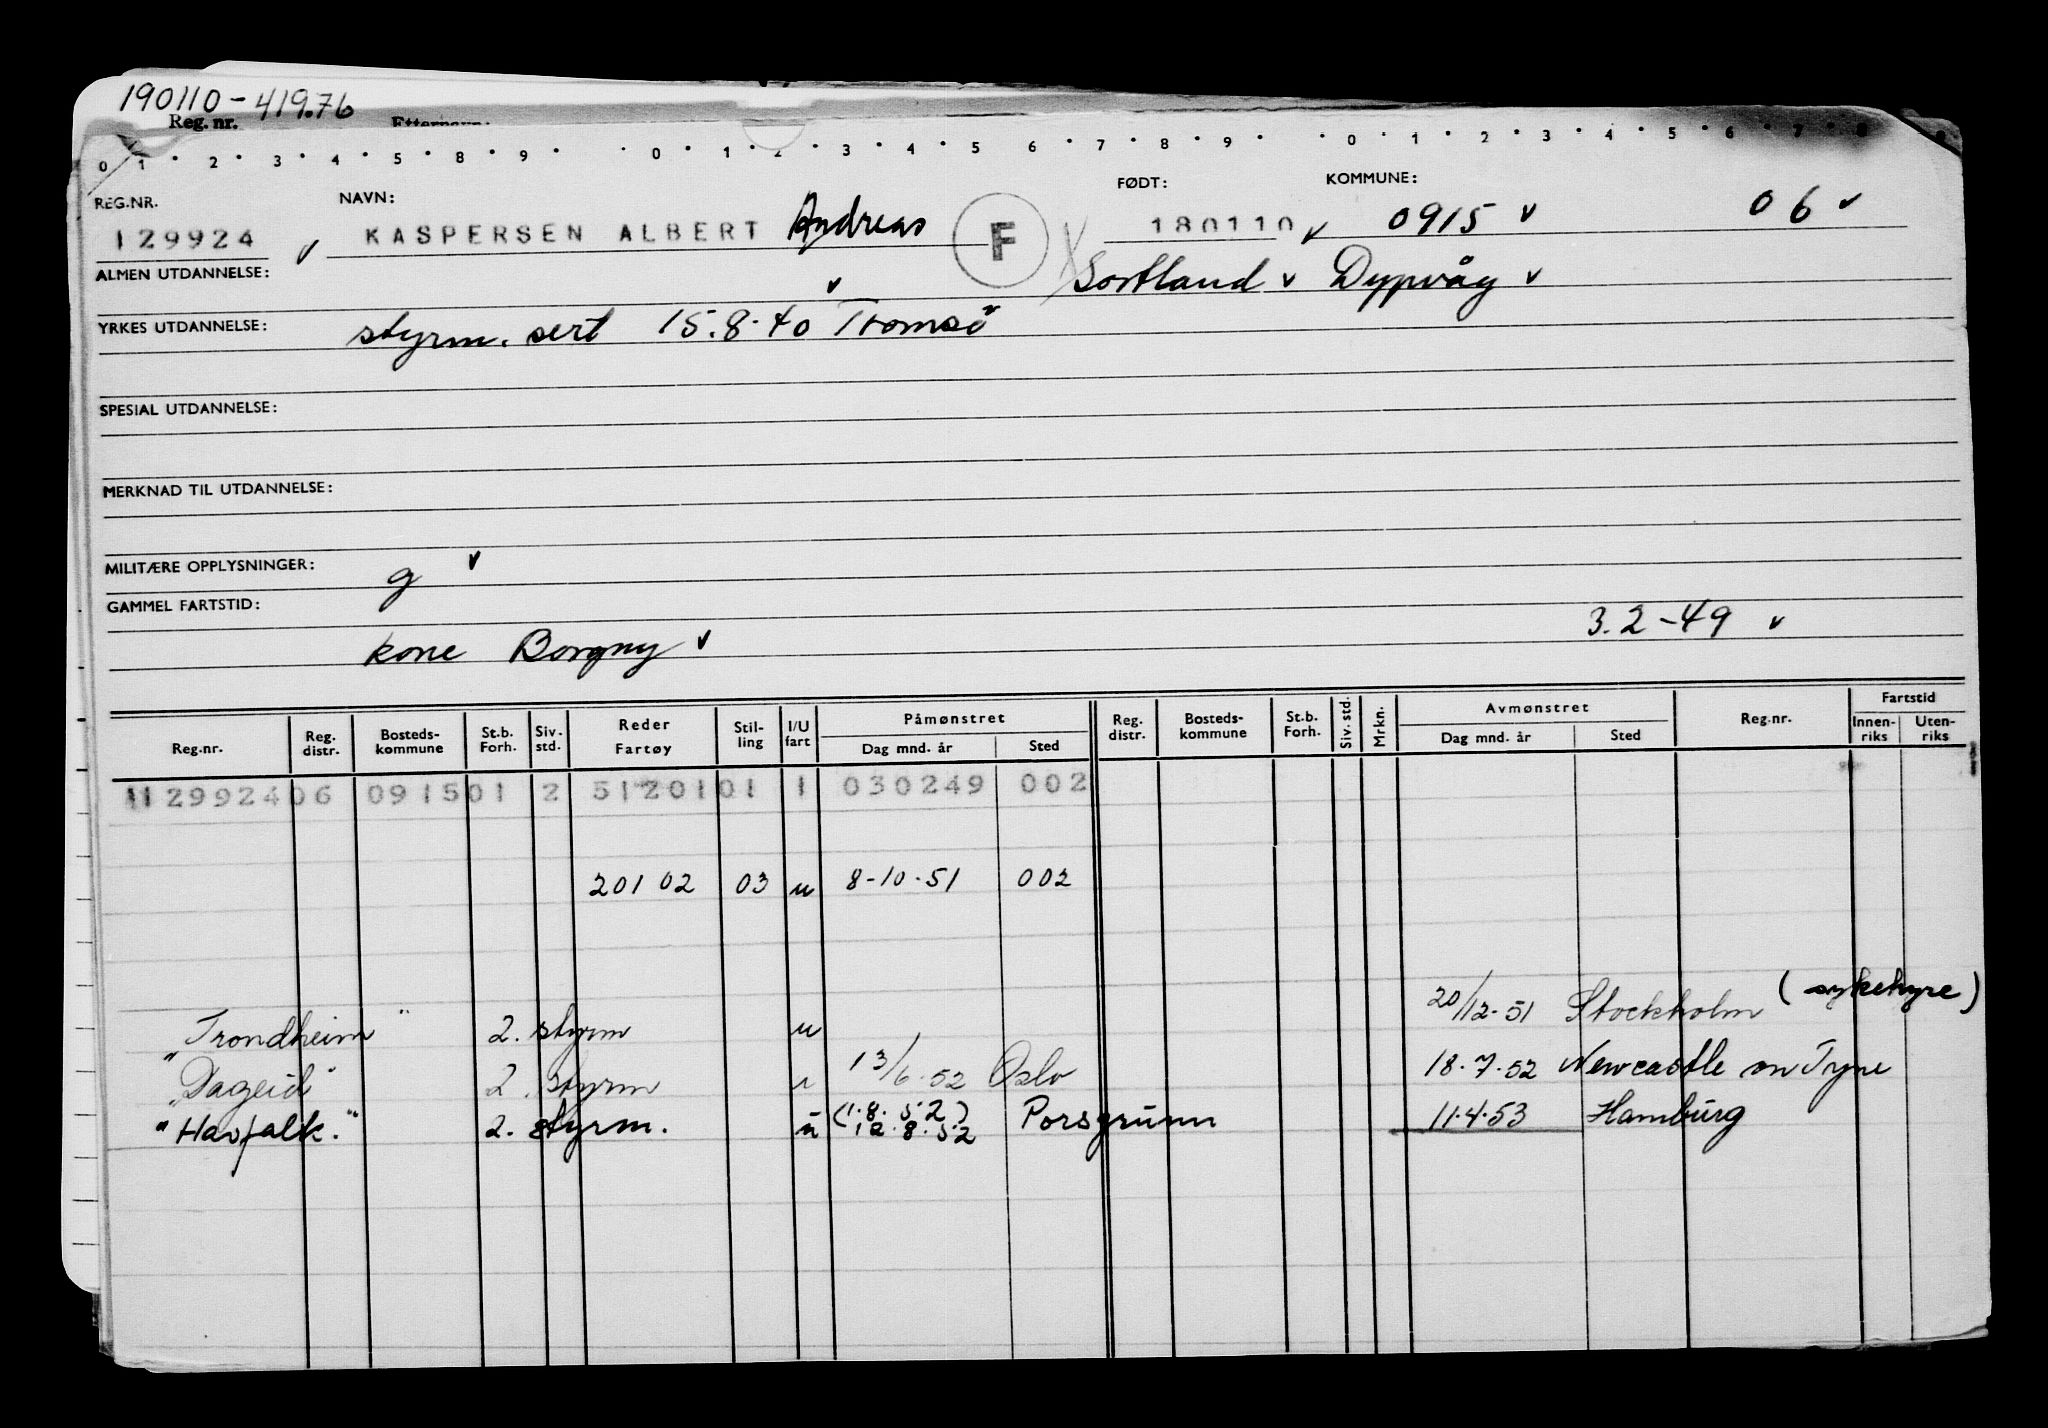 190110-41976
Reg. nr. Etternavn:
0 1 · 2 · 3 · 4 · 5 · 8 · 9 · · 0 · 1 · 2 · 3 · 4 · 5 · 6 · 7 · 8 · 9 · · 0 · 1 · 2 · 3 · 4 · 5 · 6 · 7 · 8 9
REG.NR. NAVN: FØDT: KOMMUNE:
129924 ✓ KASPERSEN ALBERT Andreas F 180110 ✓ 0915 ✓ 06 ✓
ALMEN UTDANNELSE: ✓ Sortland ✓ Dypvåg ✓
YRKES UTDANNELSE: styrm. sert 15.8.40 Tromsö
SPESIAL UTDANNELSE:
MERKNAD TIL UTDANNELSE:
MILITÆRE OPPLYSNINGER: g ✓
GAMMEL FARTSTID:
kone Borgny ✓ 3.2-49 ✓
Reg.nr. Reg. distr. Bosteds-kommune St.b. Forh. Siv. std. Reder Fartøy Stil-ling I/U fart Påmønstret Dag mnd. år Sted Reg. distr. Bosteds-kommune St.b. Forh. Siv. std. Mrkn. Avmønstret Dag mnd. år Sted Reg.nr. Fartstid Innen-riks Uten-riks
129924 06 0915 01 2 51201 01 1 030249 002
201 02 03 u 8-10-51 002
"Trondheim" 2. styrm u 20/12-51 Stockholm (sykehyre)
"Dageid" 2. styrm 13/6.52 Oslo 18.7.52 Newcastle on Tyne
"Havfalk." 2. styrm. u (1.8.52) 12.8.52 Porsgrunn 11.4.53 Hamburg